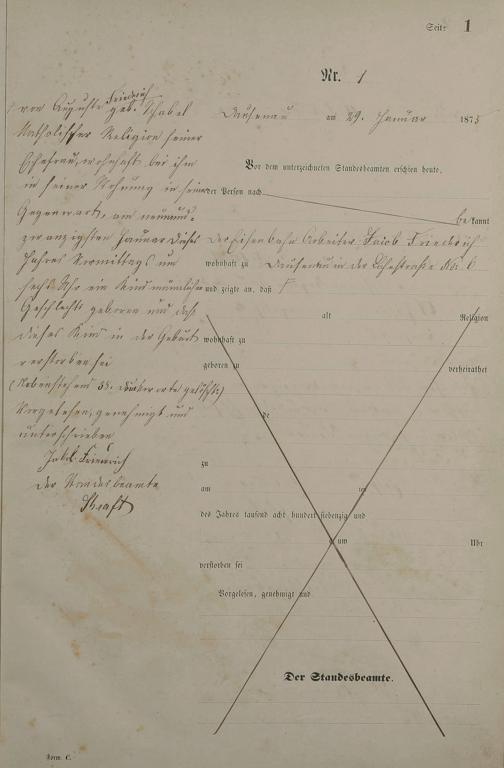 Seite 1
Nr. 1
Dausenau am 29. Januar 1875
Vor dem unterzeichneten Standesbeamten erschien heute,
der Person nach
bekannt
Der Eisenbahn Arbeiter Jacob Friedrich
wohnhaft zu Dausenau in der Lohstraße No.
und zeigte an, daß
alt Religion
wohnhaft zu
geboren zu verheirathet
de
zu
am
des Jahres tausend acht hundert siebenzig und
um Uhr
verstorben sei
Vorgelesen, genehmigt und
Der Standesbeamte.
Form. C.
von Auguste Friedrich geb. Schabel
Katholischer Religion seiner
Ehefrau, wohnhaft bei ihm
in seiner Wohnung in seiner
Gegenwart, am neunund-
zwanzigsten Januar dieses
Jahres Vormittags um
sechs Uhr ein Kind männlichen
Geschlechts geboren und daß
dieses Kind in der Geburt
verstorben sei
(Nebenstehend 38. Druckworte gelöscht)
Vorgelesen, genehmigt und
unterschrieben
Jakob Friedrich
Der Standesbeamte